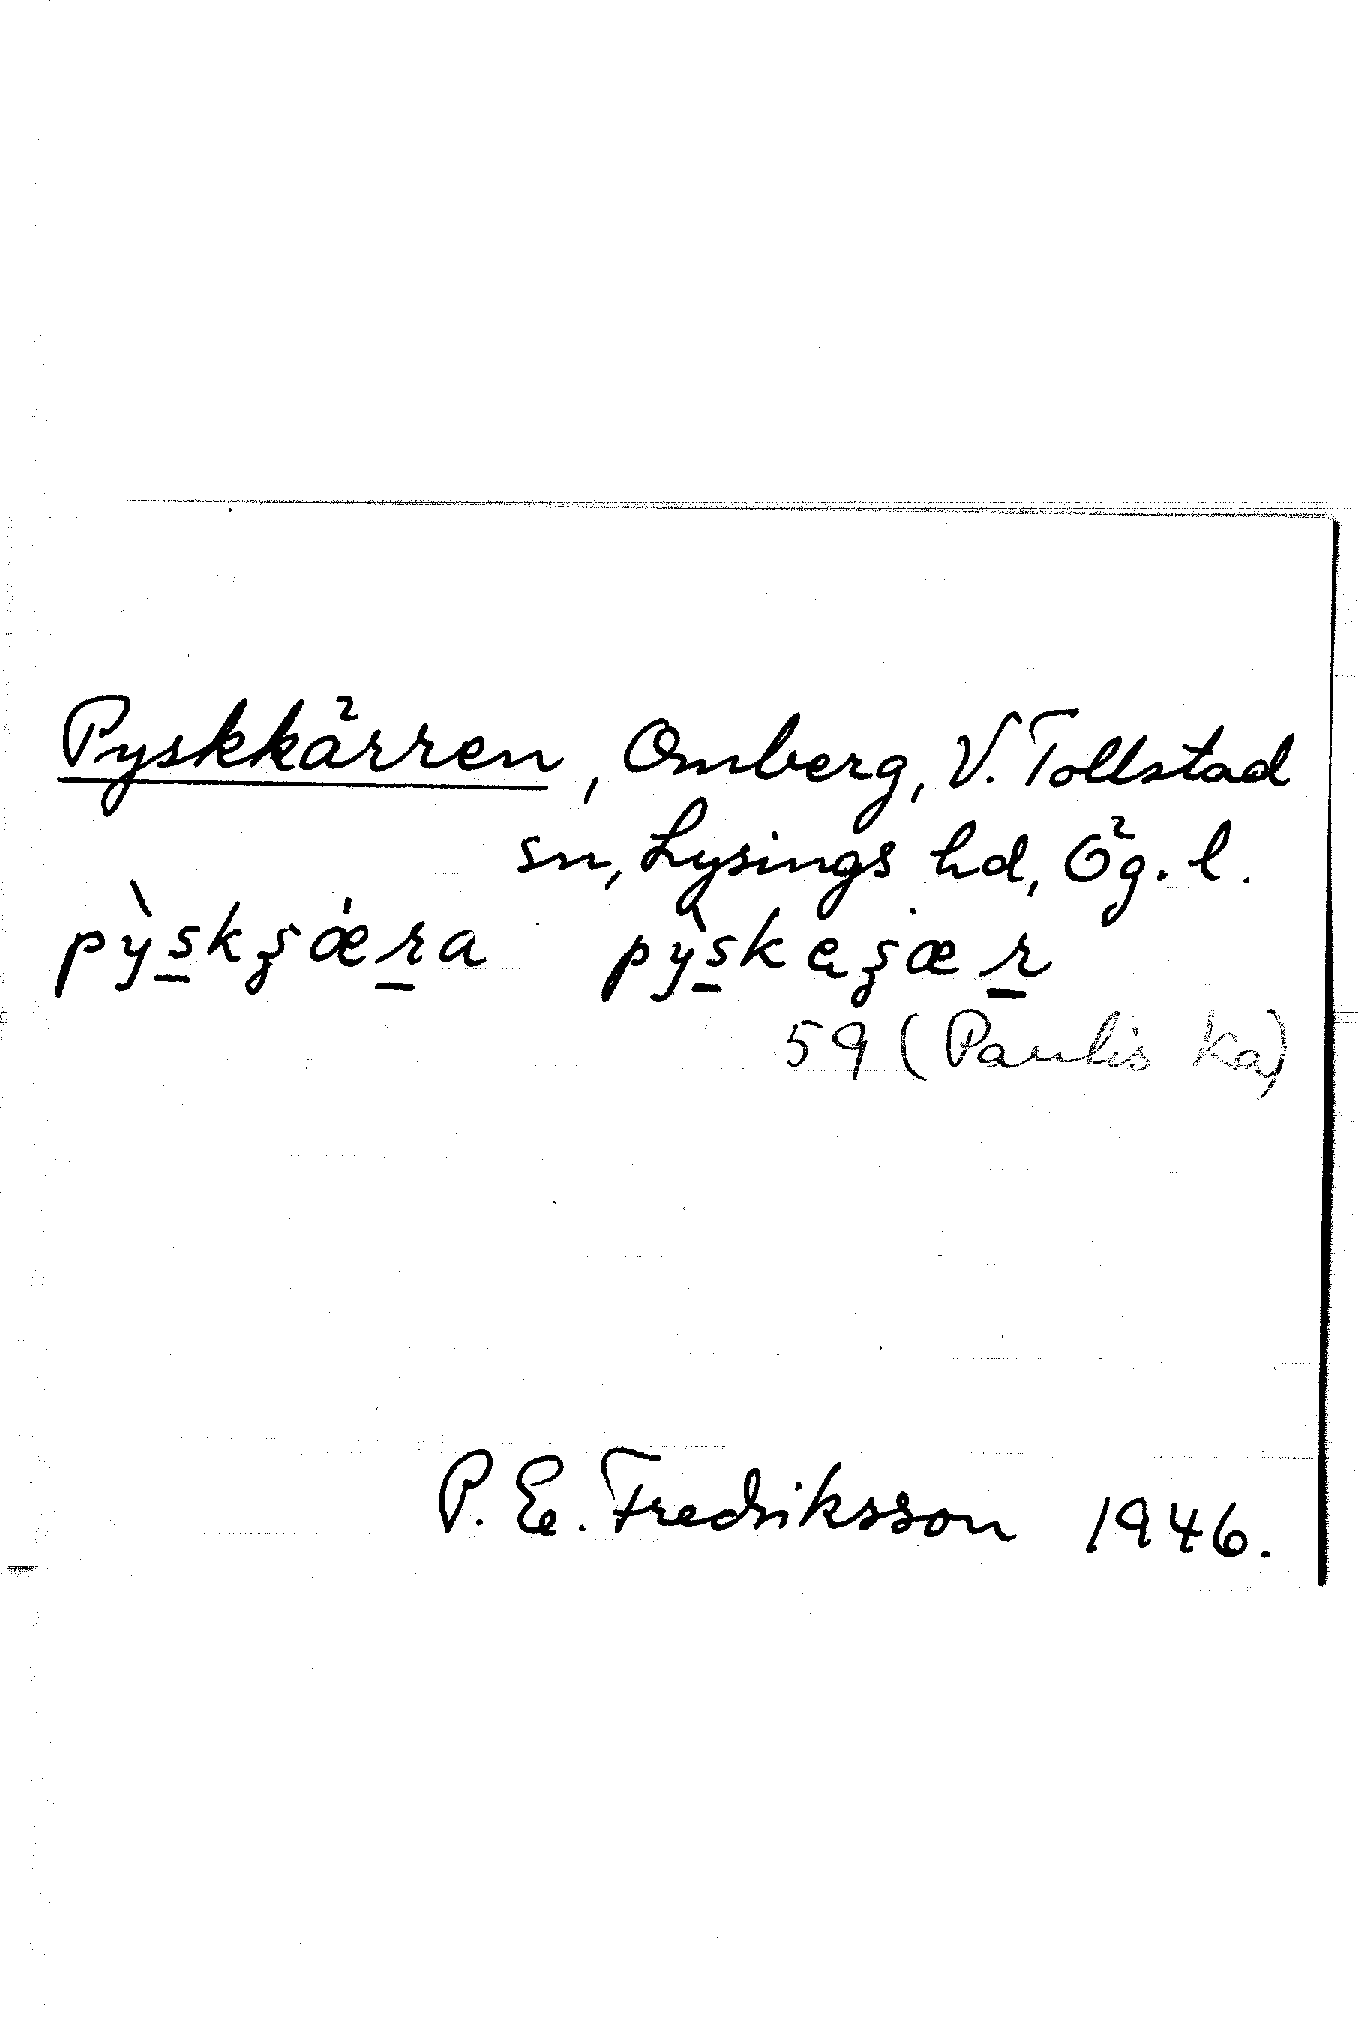 Pyskkärren, Omberg, V. Tollstad
sn, Lysings hd, Ög. l.
pỳs̲kʂǽr̲a pỳs̲kęʂær̲
59 (Paulis ka)
P. E. Fredriksson 1946.